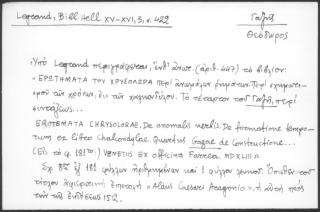 Legrand, Bibl. Hell. XV-XVI, 3, σ. 422
Γαζῆς
Θεόδωρος
Ὑπὸ Legrand περιγράφεται, (ἀριθ. 447) τὸ βιβλίον:
"ΕΡΩΤΗΜΑΤΑ ΤΟΥ ΧΡΥΣΟΛΩΡΑ Περὶ ἀνωμάλων ῥημάτων. Περὶ σχηματι-
σμοῦ τῶν χρόνων, ἐκ τῶν χαλκονδύλου. Τὸ τέταρτον τοῦ Γαζῆ, περὶ
συντάξεως...
EROTEMATA CHRYSOLORAE, De anomalis verbis. De formatione tempo-
rum ex Libro Chalcondylae. Quartus Gazae de Constructione...
VENETIIS EX officina Farrea MDXLIII"
φύλλων ἀριθμημένων καὶ 1 φύλλου
ἐπιστολὴ "Aldus Caesari Aragonio", ἡ
1512.